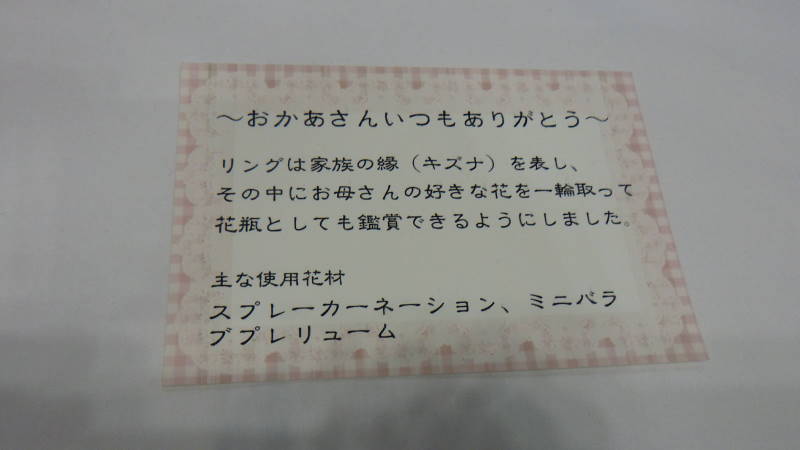 ～おかあさんいつもありがとう～
リングは家族の縁（キズナ）を表し、
その中にお母さんの好きな花を一輪取って
花瓶としても鑑賞できるようにしました。
主な使用花材
スプレーカーネーション、ミニバラ
ブプレリューム